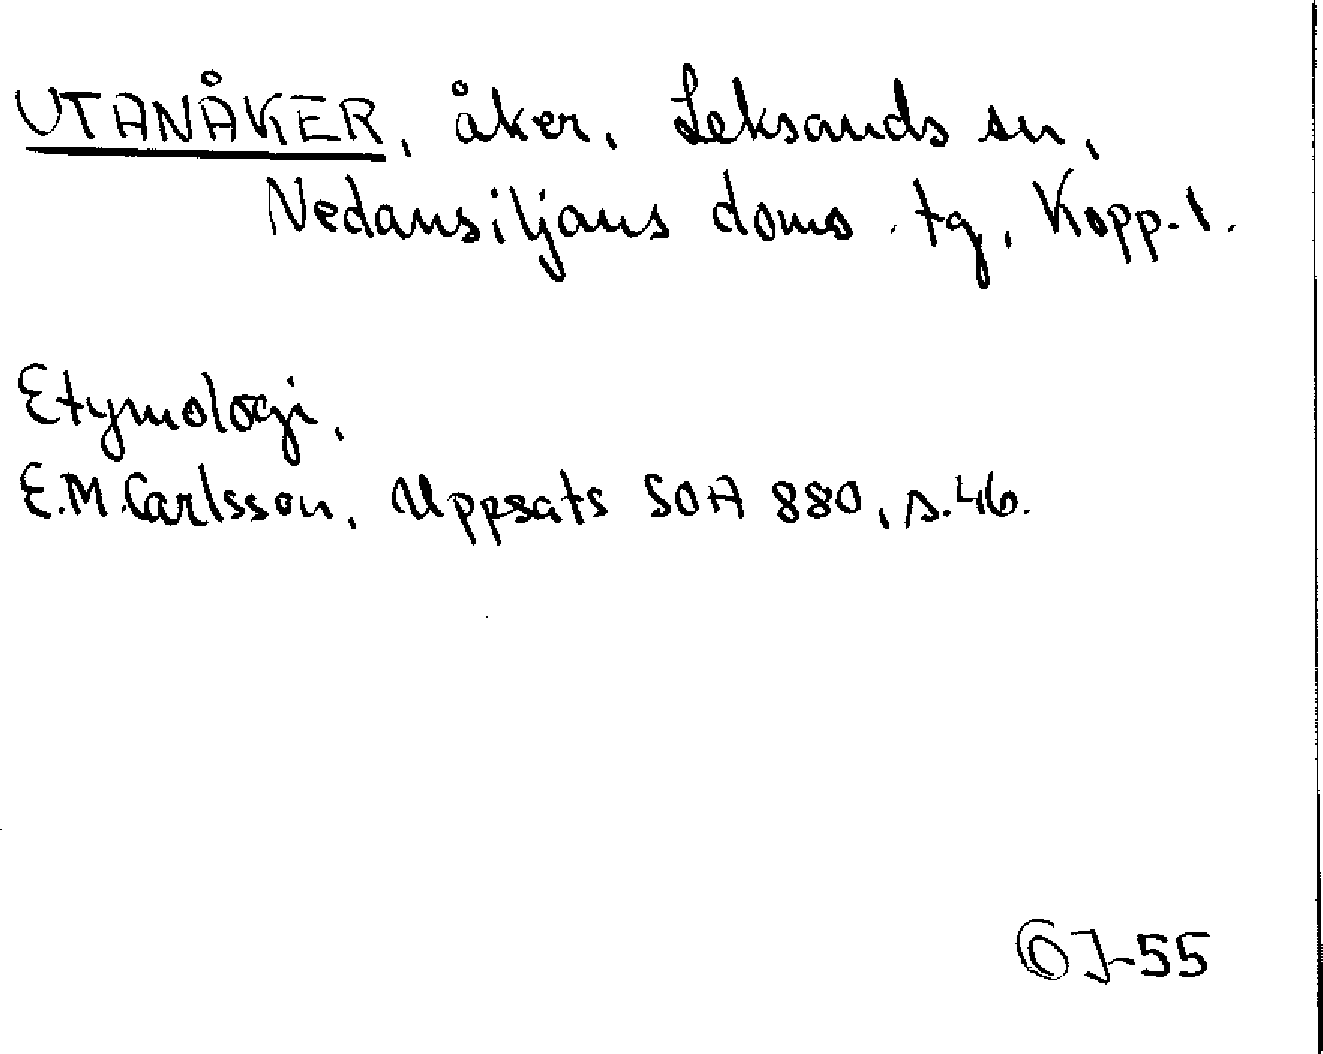 UTANÅKER, åker, Leksands sn,
Nedansiljans doms. tg, Kopp. l.
Etymologi,
E.M. Carlsson, Uppsats SOA 880, s. 46.
-55